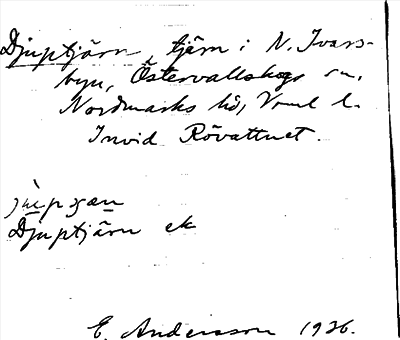 Djuptjärn, tjärn i N. Ivars-
byn, Östervallskogs sn,
Nordmarks hd, Vrml l.
Invid Rövattnet.
Djuptjärn ek
E. Andersson 1926.